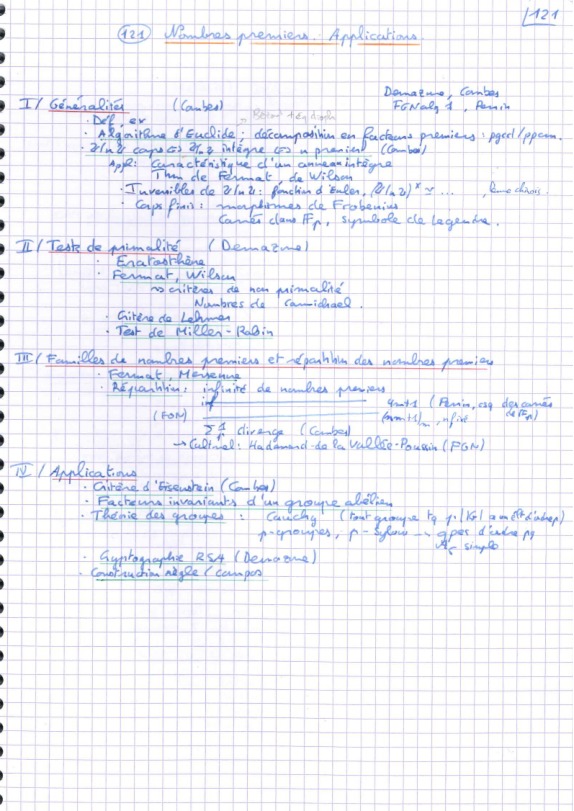 121
(121) Nombres premiers. Applications.
Demazure, Combes
FGNalg 1, Perrin
I/ Généralités (Combes)
· Déf, ex
· Algorithme d'Euclide ; décomposition en facteurs premiers : pgcd/ppcm.
· Z/nZ corps ⇔ Z/nZ intègre ⇔ n premier (Combes)
Appl : Caractéristique d'un anneau intègre
Thm de Fermat, de Wilson
· Inversibles de Z/nZ : fonction d'Euler, (Z/nZ)^x ≃ ... , lemme chinois.
· Corps finis : morphismes de Frobenius
Carrés dans F_p, symbole de Legendre.
II/ Tests de primalité (Demazure)
· Eratosthène
· Fermat, Wilson
→ critères de non primalité
Nombres de Carmichael.
· Critère de Lehmer
· Test de Miller-Rabin
III/ Familles de nombres premiers et répartition des nombres premiers
· Fermat, Mersenne
· Répartition : infinité de nombres premiers
inf 4n+1 (Perrin, csq des carrés de F_p)
(FGN)
Σ 1/p diverge (Combes)
→ Culturel : Hadamard-de la Vallée-Poussin (FGN)
IV/ Applications
· Critère d'Eisenstein (Combes)
· Facteurs invariants d'un groupe abélien
· Théorie des groupes : Cauchy (tout groupe tq p | |G| a un élt d'ordre p)
p-groupes, p-Sylow → gpes d'ordre pq
simple
· Cryptographie RSA (Demazure)
· Construction règle/compas